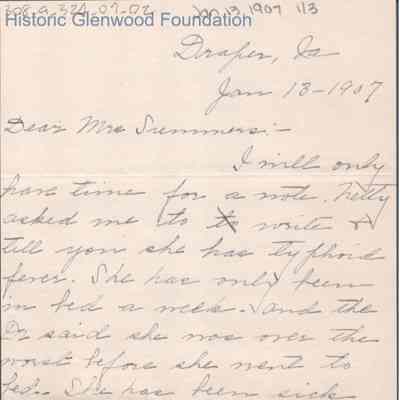 308.9.324.07.02 Jan 13, 1907 1/3
Historic Glenwood Foundation
Draper, Ia
Jan 13-1907
Dear Mrs Summers:-
I will only
have time for a note. Hetty
asked me to to write &
tell you she has typhoid
fever. She has only been
in bed a week. and the
Dr said she was over the
worst before she went to
bed. She has been sick